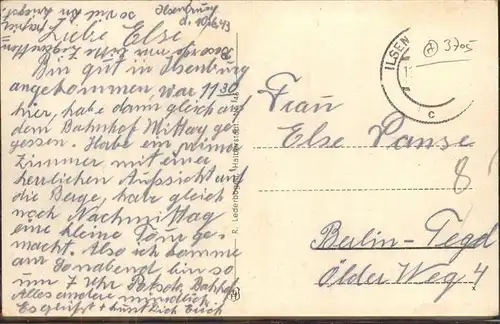 Ilsenburg
d. 10.6.43
Liebe Else
Bin gut in Ilsenburg
angekommen, war 11 30
hier, habe dann gleich auf
dem Bahnhof Mittag ge-
gessen. Habe ein prima
Zimmer mit einer
herrlichen Aussicht auf
die Berge, habe gleich
noch Nachmittag
eine kleine Tour ge-
macht. Also ich komme
am Sonnabend bin so
um 7 Uhr Potsd. Bahnhof
Alles andere mündlich
Es grüßt + küsst Dich Erich
R. Lederbogen, Halberstadt
ILSEN
c
3705
Frau
Else Panse
8
Berlin-Tegel
Ölder Weg 4